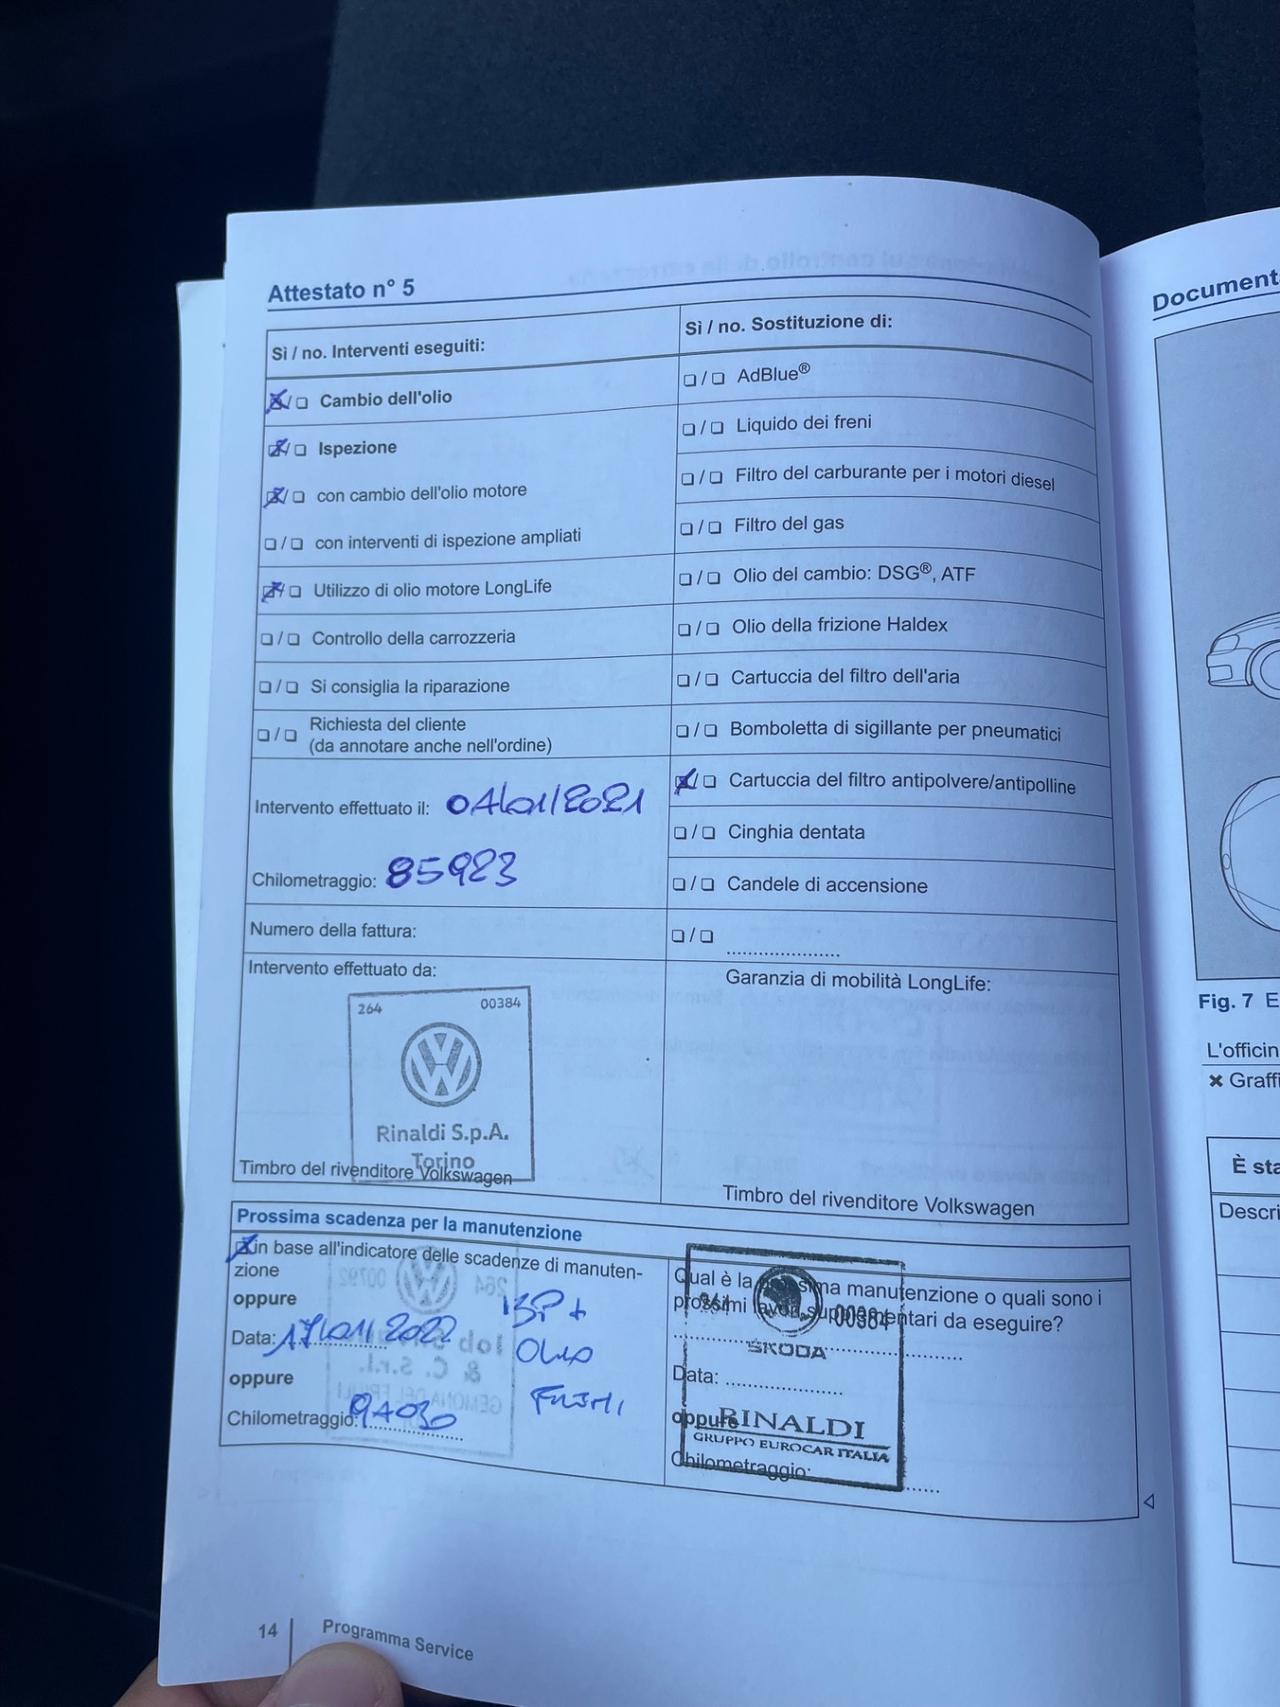 Attestato n° 5
Sì / no. Interventi eseguiti:
❏ / ❏ Cambio dell'olio
❏ / ❏ Ispezione
❏ / ❏ con cambio dell'olio motore
❏ / ❏ con interventi di ispezione ampliati
❏ / ❏ Utilizzo di olio motore LongLife
❏ / ❏ Controllo della carrozzeria
❏ / ❏ Si consiglia la riparazione
❏ / ❏ Richiesta del cliente
(da annotare anche nell'ordine)
Intervento effettuato il: 04/01/2021
Chilometraggio: 85923
Numero della fattura:
Intervento effettuato da:
264 00384
Rinaldi S.p.A.
Torino
Timbro del rivenditore Volkswagen
Sì / no. Sostituzione di:
❏ / ❏ AdBlue®
❏ / ❏ Liquido dei freni
❏ / ❏ Filtro del carburante per i motori diesel
❏ / ❏ Filtro del gas
❏ / ❏ Olio del cambio: DSG®, ATF
❏ / ❏ Olio della frizione Haldex
❏ / ❏ Cartuccia del filtro dell'aria
❏ / ❏ Bomboletta di sigillante per pneumatici
❏ / ❏ Cartuccia del filtro antipolvere/antipolline
❏ / ❏ Cinghia dentata
❏ / ❏ Candele di accensione
❏ / ❏ ....................
Garanzia di mobilità LongLife:
Timbro del rivenditore Volkswagen
Prossima scadenza per la manutenzione
❏ in base all'indicatore delle scadenze di manuten-
zione
oppure
Data: 17/01/2022
oppure
Chilometraggio: 94030
OLIO
Qual è la prossima manutenzione o quali sono i
prossimi lavori supplementari da eseguire?
264 00384
ŠKODA
Data: ....................
oppure
RINALDI
GRUPPO EUROCAR ITALIA
Chilometraggio:
14 Programma Service
Document
Fig. 7 E
L'officin
✖ Graffi
È sta
Descri